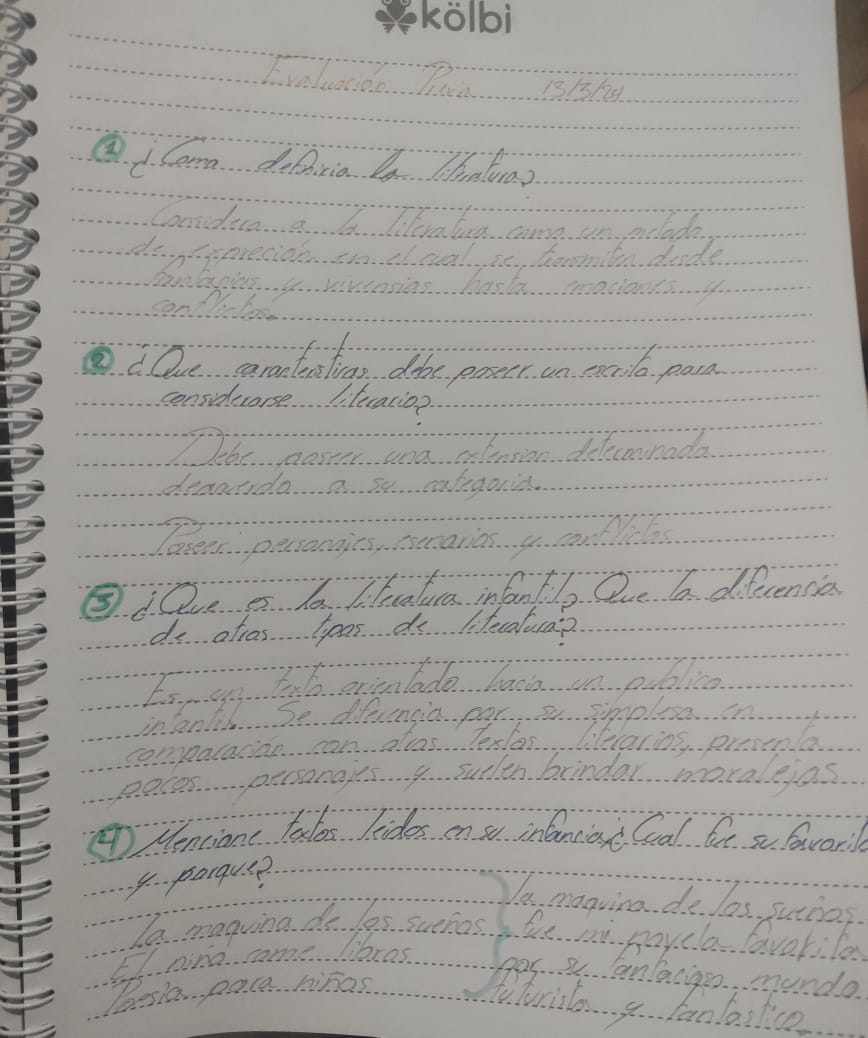 kölbi
Evaluación Previa 13/3/24
① ¿Como definiria la literatura?
Considera a la literatura como un metodo
de expreción en el cual se transmiten desde
fantacias y vivensias hasta emociones y
conflictos.
② ¿Que caracteristicas debe poseer un escrito para
considerarse literario?
Debe poseer una extension determinada
deacuerdo a su categoria.
Poseer personajes, escenarios y conflictos
③ ¿Que es la literatura infantil? Que la diferencia
de otras tipos de literatura?
Es un texto orientado hacia un publico
infantil. Se diferencia por su simplesa en
comparación con otros textos literarios, presenta
pocos personajes y suelen brindar moralejas
④ Mencione textos leidos en su infancia ¿Cual fue su favorito
y porque?
La maquina de los sueños
El niño come libros
Poesia para niños
La maquina de los sueños
fue mi novela favorita
por su fantacioso mundo
futurista y fantastico.